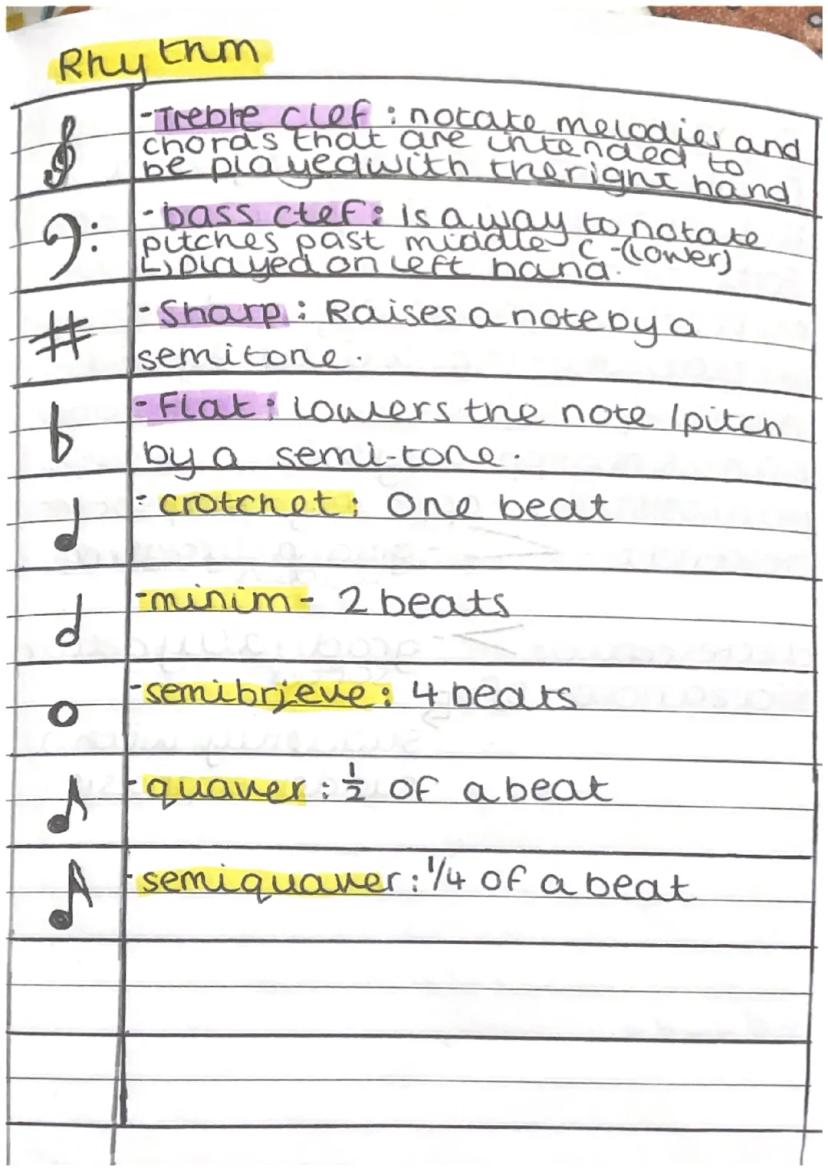 Rhythm
-Treble clef : notate melodies and
chords that are intended to
be played with the right hand
-bass clef: is a way to notate
pitches past middle C -(lower)
↳played on left hand.
-Sharp: Raises a note by a
semitone.
-Flat: lowers the note / pitch
by a semi-tone.
-crotchet: One beat
-minim- 2 beats
-semibrieve: 4 beats
-quaver: ½ of a beat
-semiquaver: 1/4 of a beat